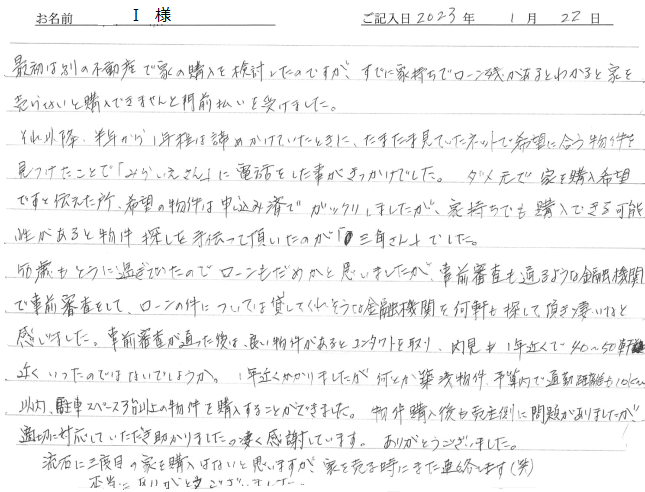 お名前 I 様 ご記入日 2023年 1月 22日
最初は別の不動産で家の購入を検討したのですが、すでに家持ちでローン残があるとわかると家を
売らないと購入できませんと門前払いを受けました。
それ以降、半年から1年程は諦めかけていたときに、たまたま見ていたネットで希望に合う物件を
見つけたことで「みらいえさん」に電話をした事がきっかけでした。 ダメ元で家を購入希望
ですと伝えた所、希望の物件は申込み済でガックリしましたが、家持ちでも購入できる可能
性があると物件探しを手伝って頂いたのが「三角さん」でした。
歳もとうに過ぎていたのでローンもだめかと思いましたが、事前審査も通るような金融機関
で事前審査をして、ローンの件については貸してくれそうな金融機関を何軒も探して頂き凄いなと
感じました。事前審査が通った後は、良い物件があるとコンタクトを取り、内見も1年近くで40〜50軒
近くいったのではないでしょうか。 1年近くかかりましたが何とか築浅物件、予算内で通勤距離も10km
以内、駐車スペース3台以上の物件を購入することができました。 物件購入後も売主側に問題がありましたが、
適切に対応していただき助かりました。凄く感謝しています。 ありがとうございました。
流石に三度目の家を購入はないと思いますが、家を売る時にまた連絡します(笑)
本当にありがとうございました。